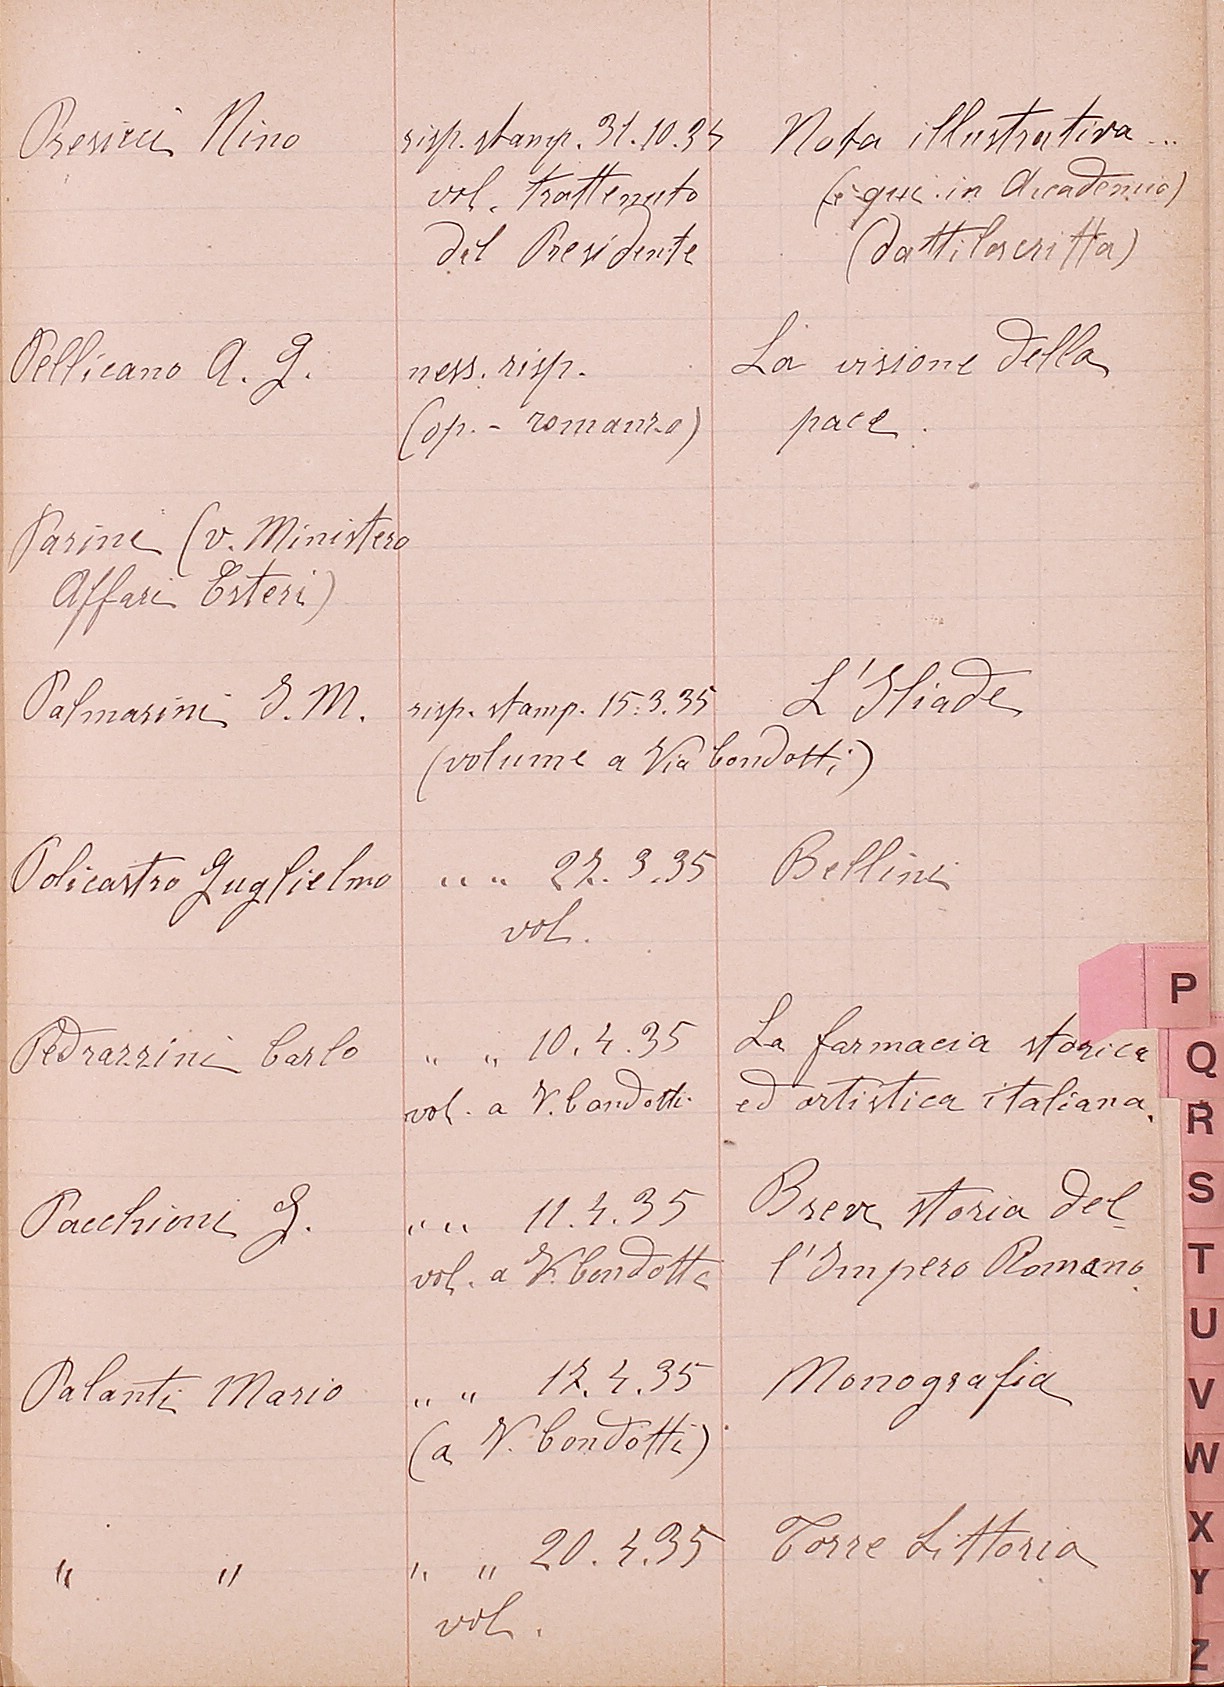 Presicci Nino risp. stamp. 31.10.34 Nota illustrativa ...
vol. trattenuto (è qui in Accademia)
dal Presidente (dattiloscritta)
Pellicano A. G. ness. risp. La visione della
(op. - romanzo) pace.
Parini (v. Ministero
Affari Esteri)
Palmarini I. M. risp. stamp. 15.3.35 L'Iliade
(volume a Via Condotti)
Policastro Guglielmo " " 27.3.35 Bellini
vol.
Pedrazzini Carlo " " 10.4.35 La farmacia storica
vol. a V. Condotti ed artistica italiana.
Pacchioni G. " " 11.4.35 Breve storia del-
vol. a V. Condotti l'Impero Romano.
Palanti Mario " " 17.4.35 Monografia
(a V. Condotti)
" " " " 20.4.35 Torre Littoria
vol.
P
Q
R
S
T
U
V
W
X
Y
Z